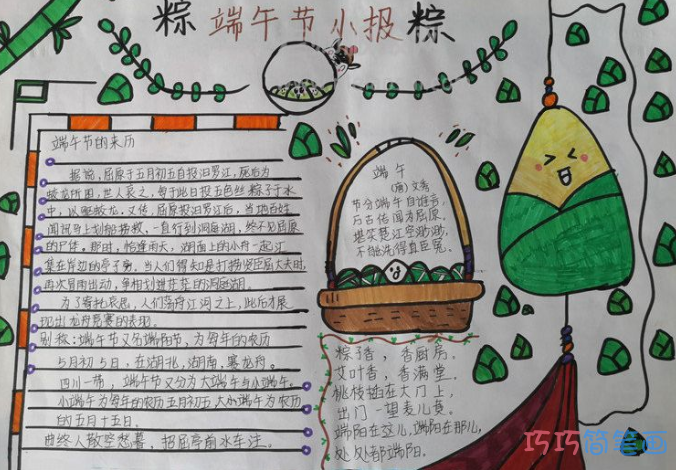 粽 端午节小报 粽
端午节的来历
据说，屈原于五月初五自投汨罗江，死后为
蛟龙所困，世人哀之，每于此日投五色丝粽子于水
中，以驱蛟龙。又传，屈原投汨罗江后，当地百姓
闻讯马上划船捞救，一直行到洞庭湖，终不见屈原
的尸体。那时，恰逢雨天，湖面上的小舟一起汇
集在岸边的亭子旁。当人们得知是打捞贤臣屈大夫时，
再次冒雨出动，争相划进茫茫的洞庭湖。
为了寄托哀思，人们荡舟江河之上，此后才展
现出龙舟竞赛的表现。
别称：端午节又名端阳节，为每年的农历
5月初5日，在湖北，湖南，赛龙舟。
四川一带，端午节又分为大端午与小端午。
小端午为每年的农历五月初五，大端午为农历
的五月十五日。
曲终人散空愁暮，招屈亭前水车注。
端午
（唐）文秀
节分端午自谁言，
万古传闻为屈原。
堪笑楚江空渺渺，
不能洗得直臣冤。
粽子香，香厨房。
艾叶香，香满堂。
桃枝插在大门上，
出门一望麦儿黄。
端阳在这儿，端阳在那儿，
处处都端阳。
巧巧简笔画